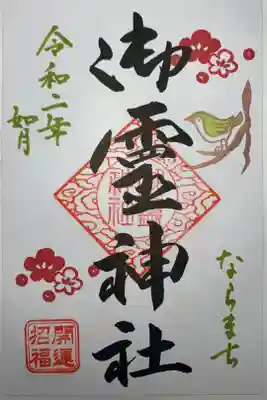 令和二年
如月
御霊神社
ならまち
開運
招福